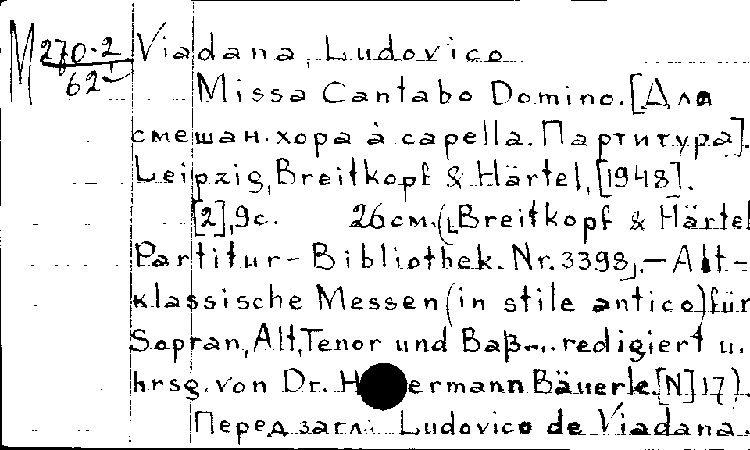 M 270-2/62 Viadana, Ludovico
Missa Cantabo Domino. [Для
смешан. хора à capella. Партитура].
Leipzig, Breitkopf & Härtel, [1948].
[2], 9 с. 26 см. (Breitkopf & Härtel
Partitur-Bibliothek. Nr. 3398). – Alt-
klassische Messen (in stile antico) für
Sopran, Alt, Tenor und Baß... redigiert u.
hrsg. von Dr. Hermann Bäuerle. [N] 17).
Перед загл: Ludovico de Viadana.